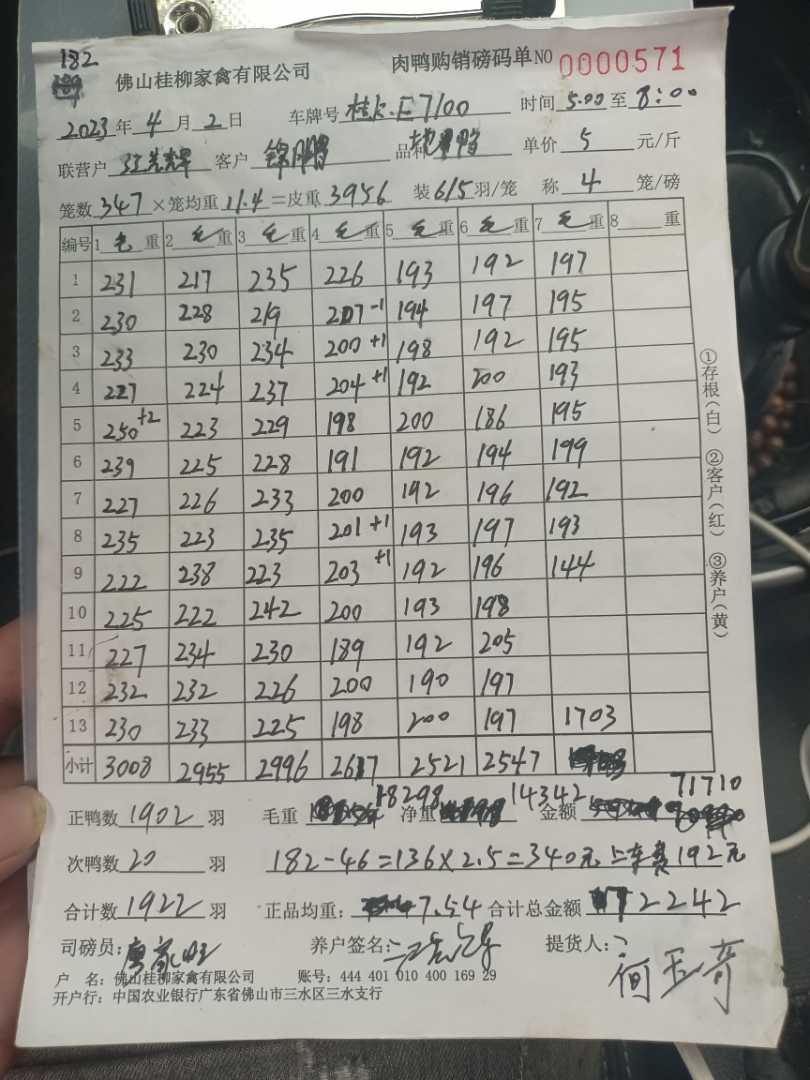 182
佛山桂柳家禽有限公司 肉鸭购销磅码单NO 0000571
2023年4月2日 车牌号 桂K·E7100 时间 5:00 至 8:00
联营户 客户 锦鹏 品种 鸭 单价 5 元/斤
笼数 347 ×笼均重 11.4 =皮重 3956 装 6/5 羽/笼 称 4 笼/磅
编号 1 毛 重 2 毛 重 3 毛 重 4 毛 重 5 毛 重 6 毛 重 7 毛 重 8 重
1 231 217 235 226 193 192 197
2 230 228 219 207-1 194 197 195
3 233 230 234 200+1 198 192 195
4 227 224 237 204+1 192 200 193
5 250+2 223 229 198 200 186 195
6 239 225 228 191 192 194 199
7 227 226 233 200 192 196 192
8 235 223 235 201+1 193 197 193
9 222 238 223 203+1 192 196 144
10 225 222 242 200 193 198
11 227 234 230 189 192 205
12 232 232 226 200 190 197
13 230 233 225 198 200 197 1703
小计 3008 2955 2996 2617 2521 2547
正鸭数 1902 羽 毛重 18298 净重 14342 金额 71710
次鸭数 20 羽 182-46=136×2.5=340元 上车费192元
合计数 1922 羽 正品均重: 7.54 合计总金额 72242
司磅员: 养户签名: 提货人: 何玉奇
户 名: 佛山桂柳家禽有限公司 账号: 444 401 010 400 169 29
开户行: 中国农业银行广东省佛山市三水区三水支行
①存根(白) ②客户(红) ③养户(黄)